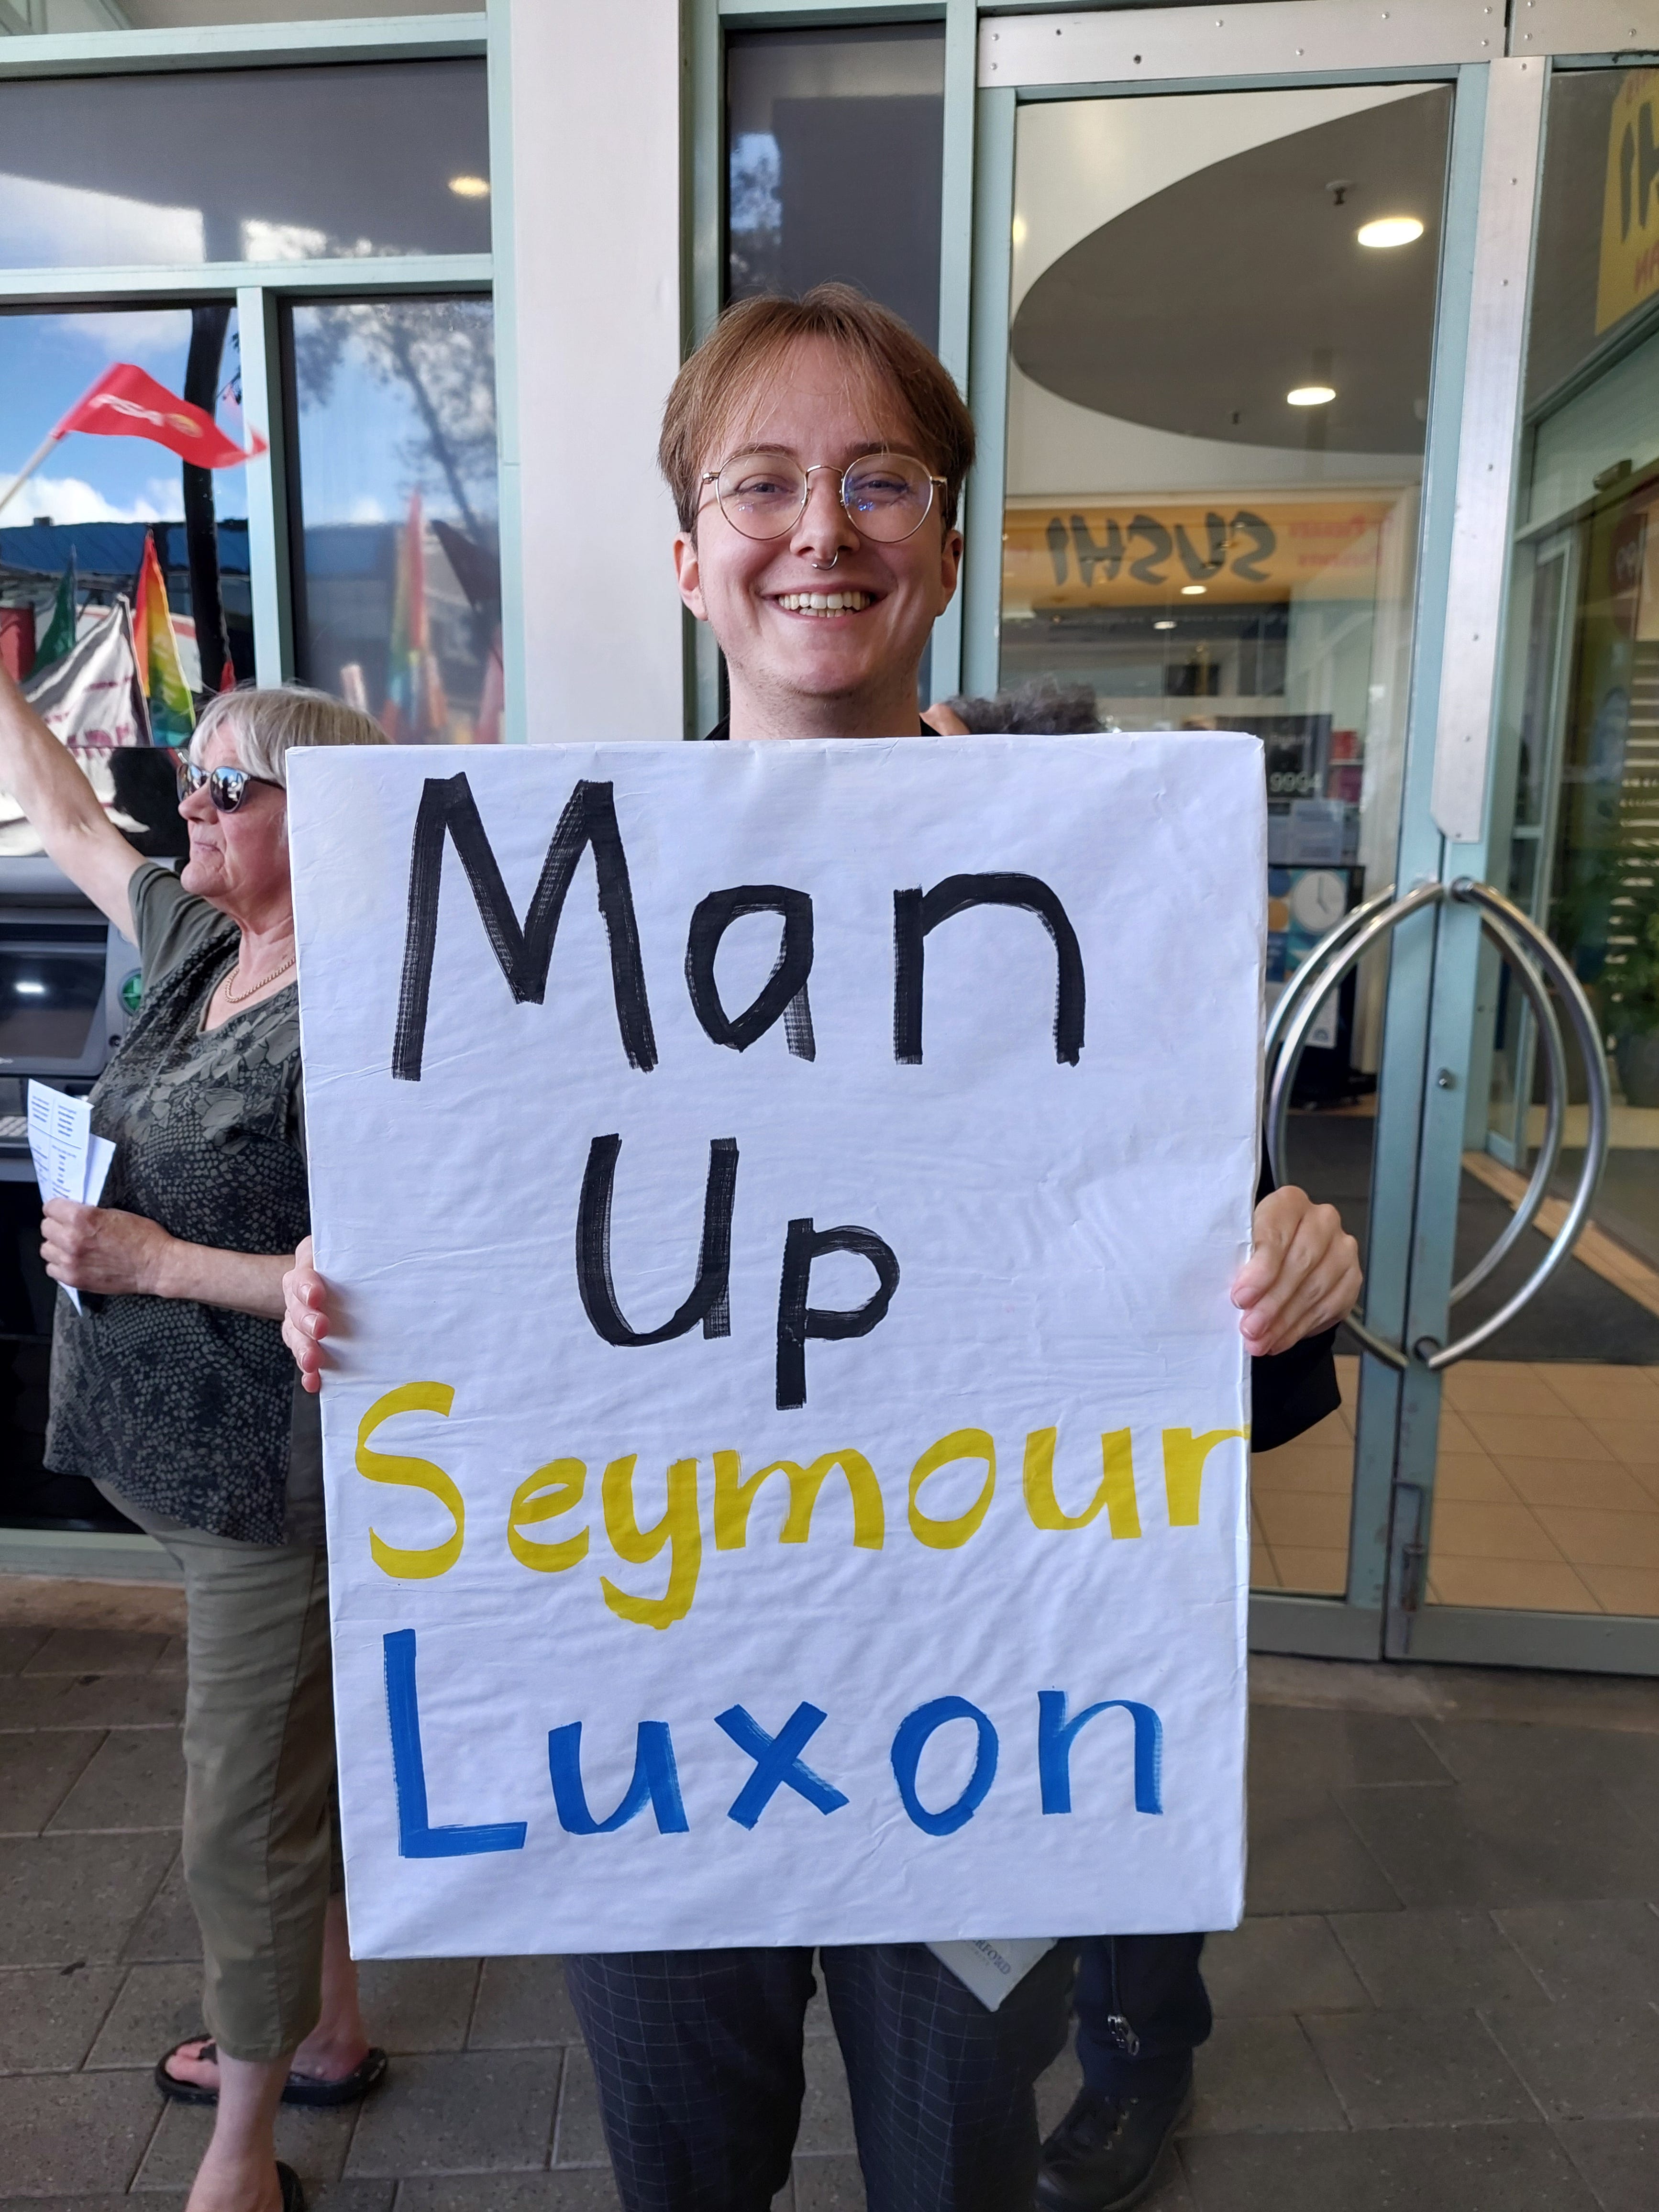 Man
Up
Seymour
Luxon
SUSHI